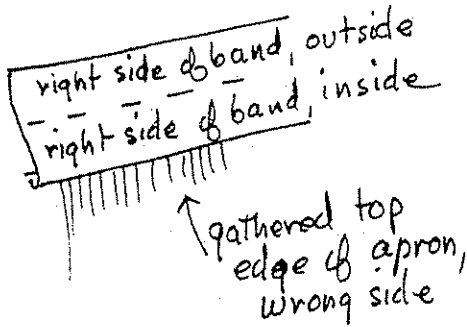 right side of band, outside
right side of band, inside
gathered top
edge of apron,
wrong side